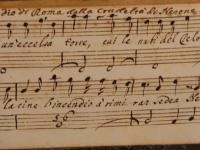 dio di Roma dalla crudeltà di Nerone
un'eccelsa torre, cui le nubi del Cielo
la cine l'incendio à rimi rar Sedea Ne